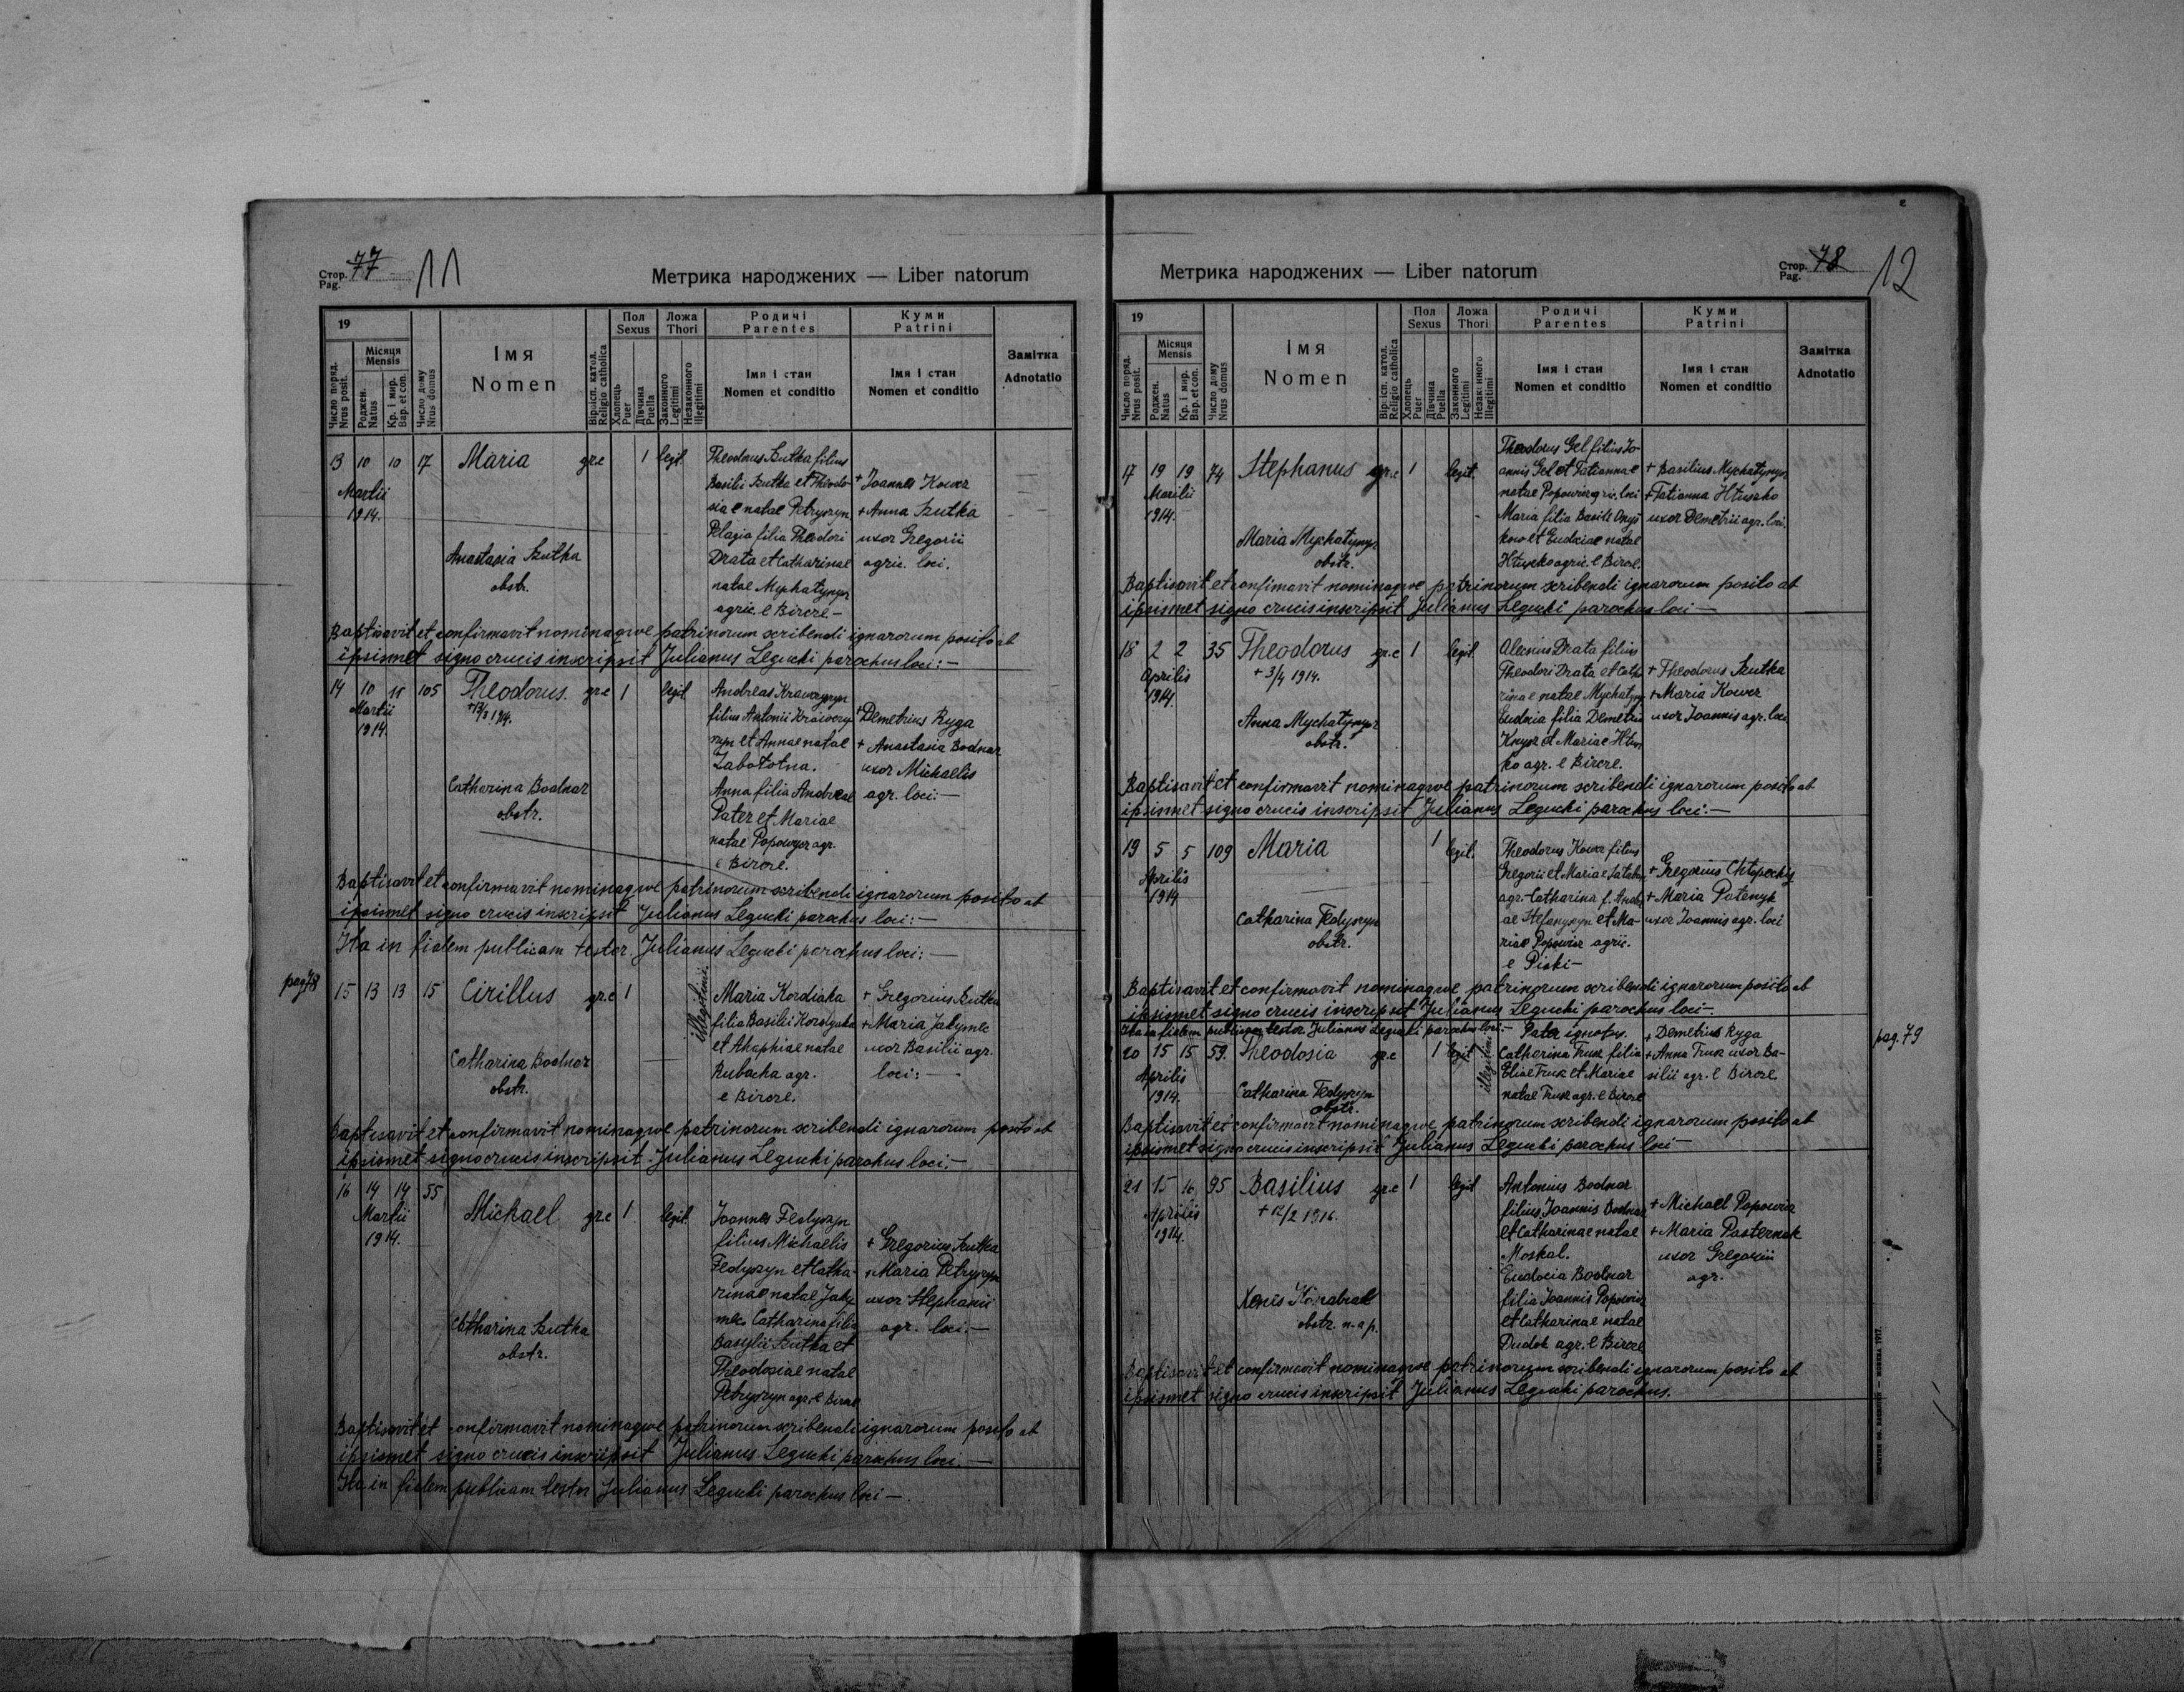 Стор. 77
Pag.
11
Метрика народжених — Liber natorum
19
Місяця
Mensis
Число поряд.
Nrus posit.
Роджен.
Natus
Кр. і мир.
Bap. et con.
Число дому
Nrus domus
Імя
Nomen
Віроісп. катол.
Religio catholica
Пол
Sexus
Хлопець
Puer
Дівчина
Puella
Ложа
Thori
Законного
Legitimi
Незаконного
Illegitimi
Родичі
Parentes
Імя і стан
Nomen et conditio
Куми
Patrini
Імя і стан
Nomen et conditio
Замітка
Adnotatio
13 10 10 17 Maria gr.c 1 legit.
Martii
1914.
Anastasia Szutka
obstr.
Theodorus Szutka filius
Basilii Szutka et Theodo-
siae natae Petryszyn
Pelagia filia Theodori
Drata et Catharinae
natae Mychatynyn
agric. e Bircze —
+ Joannes Kowcz
+ Anna Szutka
uxor Gregorii
agric. loci.
Baptisavit et confirmavit nominaque patrinorum scribendi ignarorum posito ab
ipsismet signo crucis inscripsit Julianus Legucki parochus loci: —
14 10 11 105 Theodorus. gr.c 1 legit
Martii
1914.
Catharina Bodnar
obstr.
Andreas Krawczyszyn
filius Antonii Krawczy-
szyn et Annae natae
Zabołotna.
Anna filia Andreae
Pater et Mariae
natae Popowycz agr.
e Bircze.
+ Demetrius Ryga
+ Anastasia Bodnar
uxor Michaelis
agr. loci: —
Baptisavit et confirmavit nominaque patrinorum scribendi ignarorum posito ab
ipsismet signo crucis inscripsit Julianus Legucki parochus loci: —
Ita in fidem publicam testor. Julianus Legucki parochus loci: —
pag. 78
15 13 13 15 Cirillus gr.c 1 illegitimi.
Catharina Bodnar
obstr.
Maria Kordiaka
filia Basilii Kordyaka
et Ahaphiae natae
Rubacha agr.
e Bircze.
+ Gregorius Szutka
+ Maria Jakymec
uxor Basilii agr.
loci: —
Baptisavit et confirmavit nominaque patrinorum scribendi ignarorum posito ab
ipsismet signo crucis inscripsit. Julianus Legucki parochus loci. —
16 14 14 55 Michael gr.c 1. legit.
Martii
1914.
Catharina Szutka
obstr.
Joannes Fedyszyn
filius Michaelis
Fedyszyn et Catha-
rinae natae Jaky
mec Catharina filia
Basylii Szutka et
Theodosiae natae
Petryszyn agr. e Bircze
+ Gregorius Szutka
+ Maria Petryszyn
uxor Stephanii
agr. loci. —
Baptisavit et confirmavit nominaque patrinorum scribendi ignarorum posito ab
ipsismet signo crucis inscripsit Julianus Legucki parochus loci. —
Ita in fidem publicam testor Julianus Legucki parochus loci —
Метрика народжених — Liber natorum
Стор. 78
Pag.
12
19
Місяця
Mensis
Число поряд.
Nrus posit.
Роджен.
Natus
Кр. і мир.
Bap. et con.
Число дому
Nrus domus
Імя
Nomen
Віроісп. катол.
Religio catholica
Пол
Sexus
Хлопець
Puer
Дівчина
Puella
Ложа
Thori
Законного
Legitimi
Незаконного
Illegitimi
Родичі
Parentes
Імя і стан
Nomen et conditio
Куми
Patrini
Імя і стан
Nomen et conditio
Замітка
Adnotatio
17 19 19 74 Stephanus gr.c 1 legit.
Martii
1914.
Maria Mychatynyn
obstr.
Theodorus Gel filius Jo-
annis Gel et Tatiannae
natae Popowicz agric. loci
Maria filia Basili Onys
kow et Eudoxiae natae
Htuszko agric. e Bircze.
+ Basilius Mychatynyn
+ Tatianna Htuszko
uxor Demetrii agr. loci.
Baptisavit et confirmavit nominaque patrinorum scribendi ignarorum posito ab
ipsismet signo crucis inscripsit Julianus Legucki parochus loci —
18 2 2 35 Theodorus gr.c 1 legit.
Aprilis
1914.
+ 3/4 1914.
Anna Mychatynyn
obstr.
Alexius Drata filius
Theodori Drata et Catha
rinae natae Mychatyny
Eudoxia filia Demetrii
Knysz et Mariae Htusz
ko agr. e Bircze.
+ Theodorus Szutka
+ Maria Kowcz
uxor Joannis agr. loci
Baptisavit et confirmavit nominaque patrinorum scribendi ignarorum posito ab
ipsismet signo crucis inscripsit Julianus Legucki parochus loci: —
19 5 5 109 Maria 1 legit.
Aprilis
1914
Catharina Fedyszyn
obstr.
Theodorus Kowcz filius
Gregorii et Mariae
agr. Catharina f. Andre
ae Stefanyszyn et Ma-
riae Popowicz agric.
e Piski —
+ Gregorius Chtopecky
+ Maria Potenyk
uxor Joannis agr. loci
Baptisavit et confirmavit nominaque patrinorum scribendi ignarorum posito ab
ipsismet signo crucis inscripsit Julianus Legucki parochus loci —
Ita in fidem publicam testor Julianus Legucki parochus loci: —
pag. 79
20 15 15 59. Theodosia gr.c 1 legit illegitimi
Aprilis
1914.
Catharina Fedyszyn
obstr.
Pater ignotus.
Catharina Trusz filia
Eliae Trusz et Mariae
natae Trusz agr. e Bircze
+ Demetrius Ryga
+ Anna Trusz uxor Ba-
silii agr. e Bircze.
Baptisavit et confirmavit nominaque patrinorum scribendi ignarorum posito ab
ipsismet signo crucis inscripsit Julianus Legucki parochus loci —
21 15 16 95 Basilius gr.c 1 legit
Aprilis
1914.
+ 12/2 1916.
obstr. n. ap.
Antonius Bodnar
filius Joannis Bodnar
et Catharinae natae
Moskal.
Eudocia Bodnar
filia Joannis Popowicz
et Catharinae natae
Dudek agr. e Bircze
+ Michael Popowicz
+ Maria Pasternak
uxor Gregorii
agr.
Baptisavit et confirmavit nominaque patrinorum scribendi ignarorum posito ab
ipsismet signo crucis inscripsit Julianus Legucki parochus.